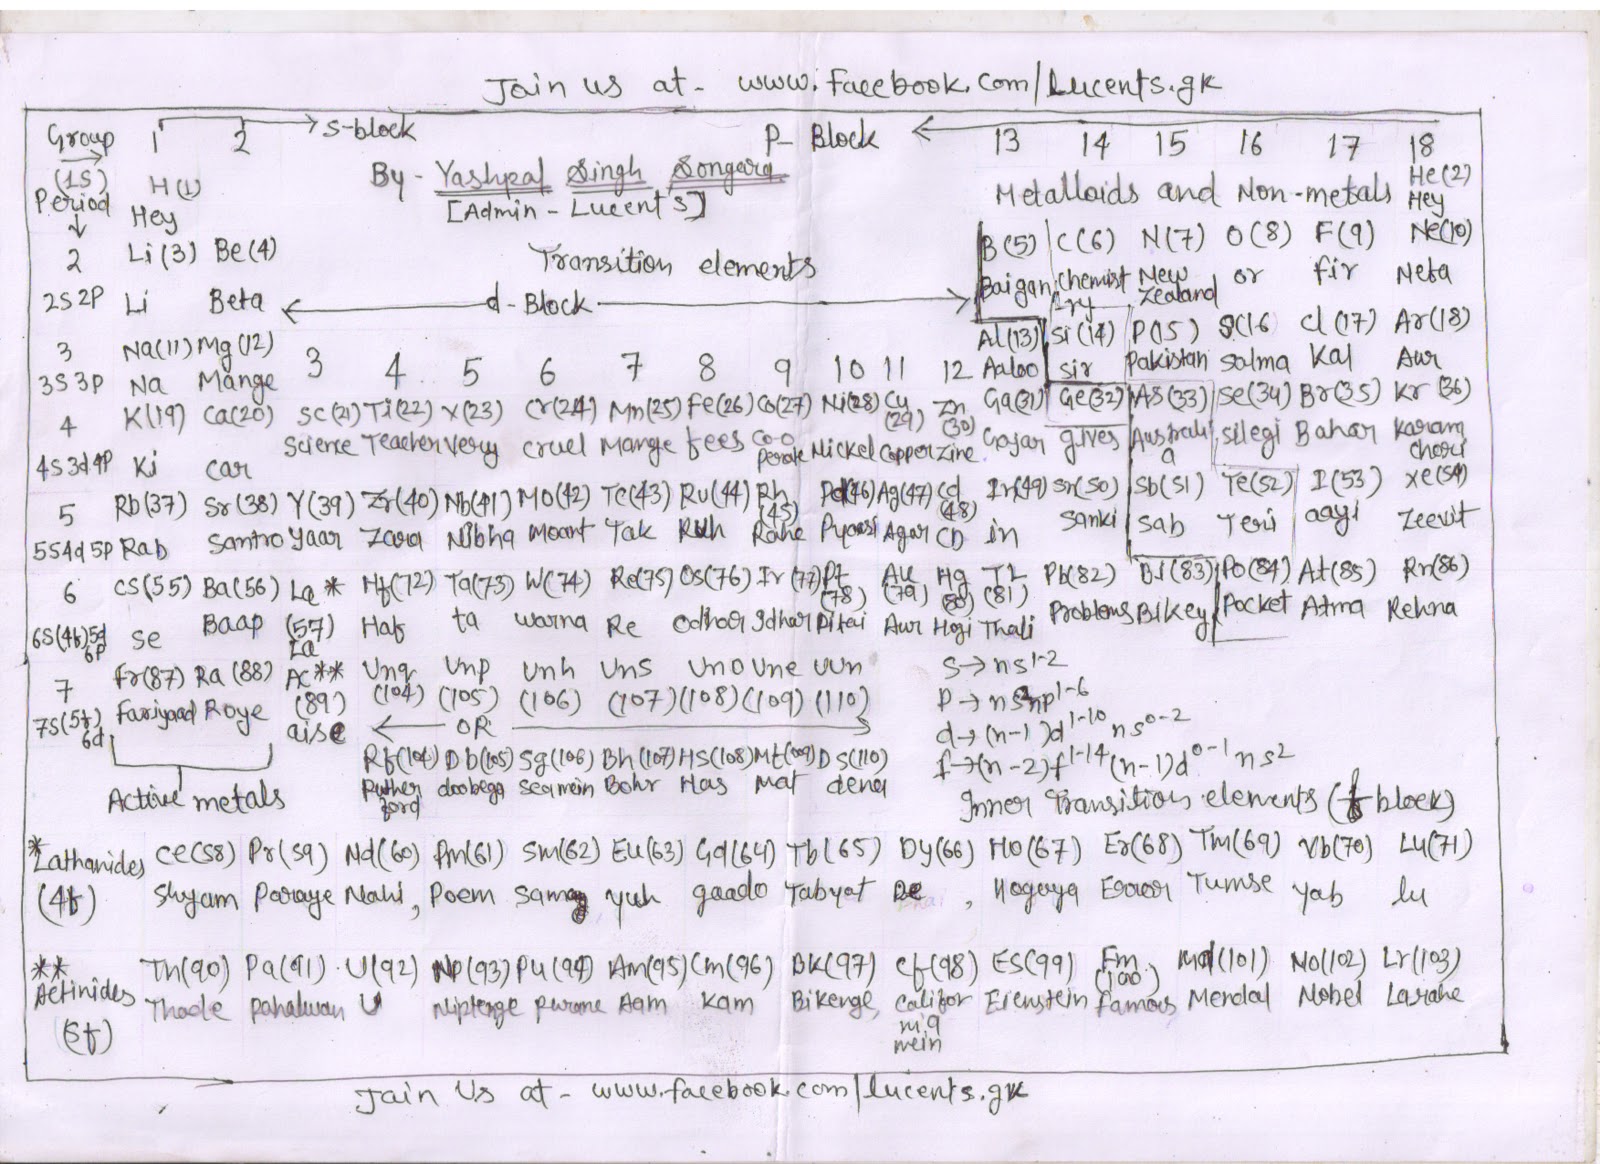 Join us at - www.facebook.com/Lucents.gk
Group 1 2 → s-block P- Block ← 13 14 15 16 17 18
(1S) H(1) By - Yashpal Singh Songara Metalloids and Non-metals He(2)
Period Hey [Admin - Lucent's] Hey
2 Li(3) Be(4) Transition elements B(5) C(6) N(7) O(8) F(9) Ne(10)
2S 2P Li Beta ← d-Block → Baigan Chemist ry New Zealand or fir Neta
3 Na(11) Mg(12) Al(13) Si(14) P(15) S(16 Cl(17) Ar(18)
3S 3P Na Mange 3 4 5 6 7 8 9 10 11 12 Aaloo sir Pakistan salma Kal Aur
4 K(19) Ca(20) SC(21) Ti(22) V(23) Cr(24) Mn(25) Fe(26) Co(27) Ni(28) Cu (29) Zn (30) Ga(31) Ge(32) AS(33) Se(34) Br(35) Kr(36)
4S 3d 4P Ki car Science Teacher Very cruel Mange fees Co-o perate Nickel Copper zinc Gajar gives Australi a silegi Bahar Karam chori
5 Rb(37) Sr(38) Y(39) Zr(40) Nb(41) Mo(42) Tc(43) Ru(44) Rh (45) Pd(46) Ag(47) Cd (48) In(49) Sn(50) Sb(51) Te(52) I(53) Xe(54)
5S 4d 5P Rab Santro Yaar Zara Nibha Moant Tak Ruh Rahe Pyaasi Agar CD in Sanki Sab Teri aayi Zeevit
6 CS(55) Ba(56) La * Hf(72) Ta(73) W(74) Re(75) Os(76) Ir(77) Pt (78) Au (79) Hg 80) TL (81) Pb(82) Bi(83) Po(84) At(85) Rn(86)
6S(4f)5d 6P se Baap (57) La Haf ta warna Re Odhar Idhar Pitai Aur Hogi Thali Problems Bikey Pocket Atma Rehna
7 Fr(87) Ra(88) Ac** Unq Unp Unh Uns Uno Une UUn S→ns1-2
7S(5f) 6d Fariyaad Roye (89) (104) (105) (106) (107) (108) (109) (110) P→ns2np1-6
aise ← OR → d→(n-1)d1-10 ns0-2
Rf(104) Db(105) Sg(106) Bh(107) HS(108) Mt(109) DS(110) f→(n-2)f1-14 (n-1)d0-1 ns2
Active metals Ruther ford doobega seamein Bohr Has Mat dena Inner Transition elements (f block)
*Lathanides Ce(58) Pr(59) Nd(60) Pm(61) Sm(62) Eu(63) Gd(64) Tb(65) Dy(66) Ho(67) Er(68) Tm(69) Yb(70) Lu(71)
(4f) Shyam Paraye Nahi, Poem Samag yuh gaado Tabyat De, Hogaya Error Tumse Yab lu
** Actinides Th(90) Pa(91) U(92) Np(93) Pu(94) Am(95) Cm(96) BK(97) Cf(98) ES(99) Fm (100) Md(101) No(102) Lr(103)
(5f) Thode Pahalwan U Niptenge Purane Aam Kam Bikenge, Califor nia mein Eienstein famous Mendal Nobel Larahe
Join Us at - www.facebook.com/lucents.gk